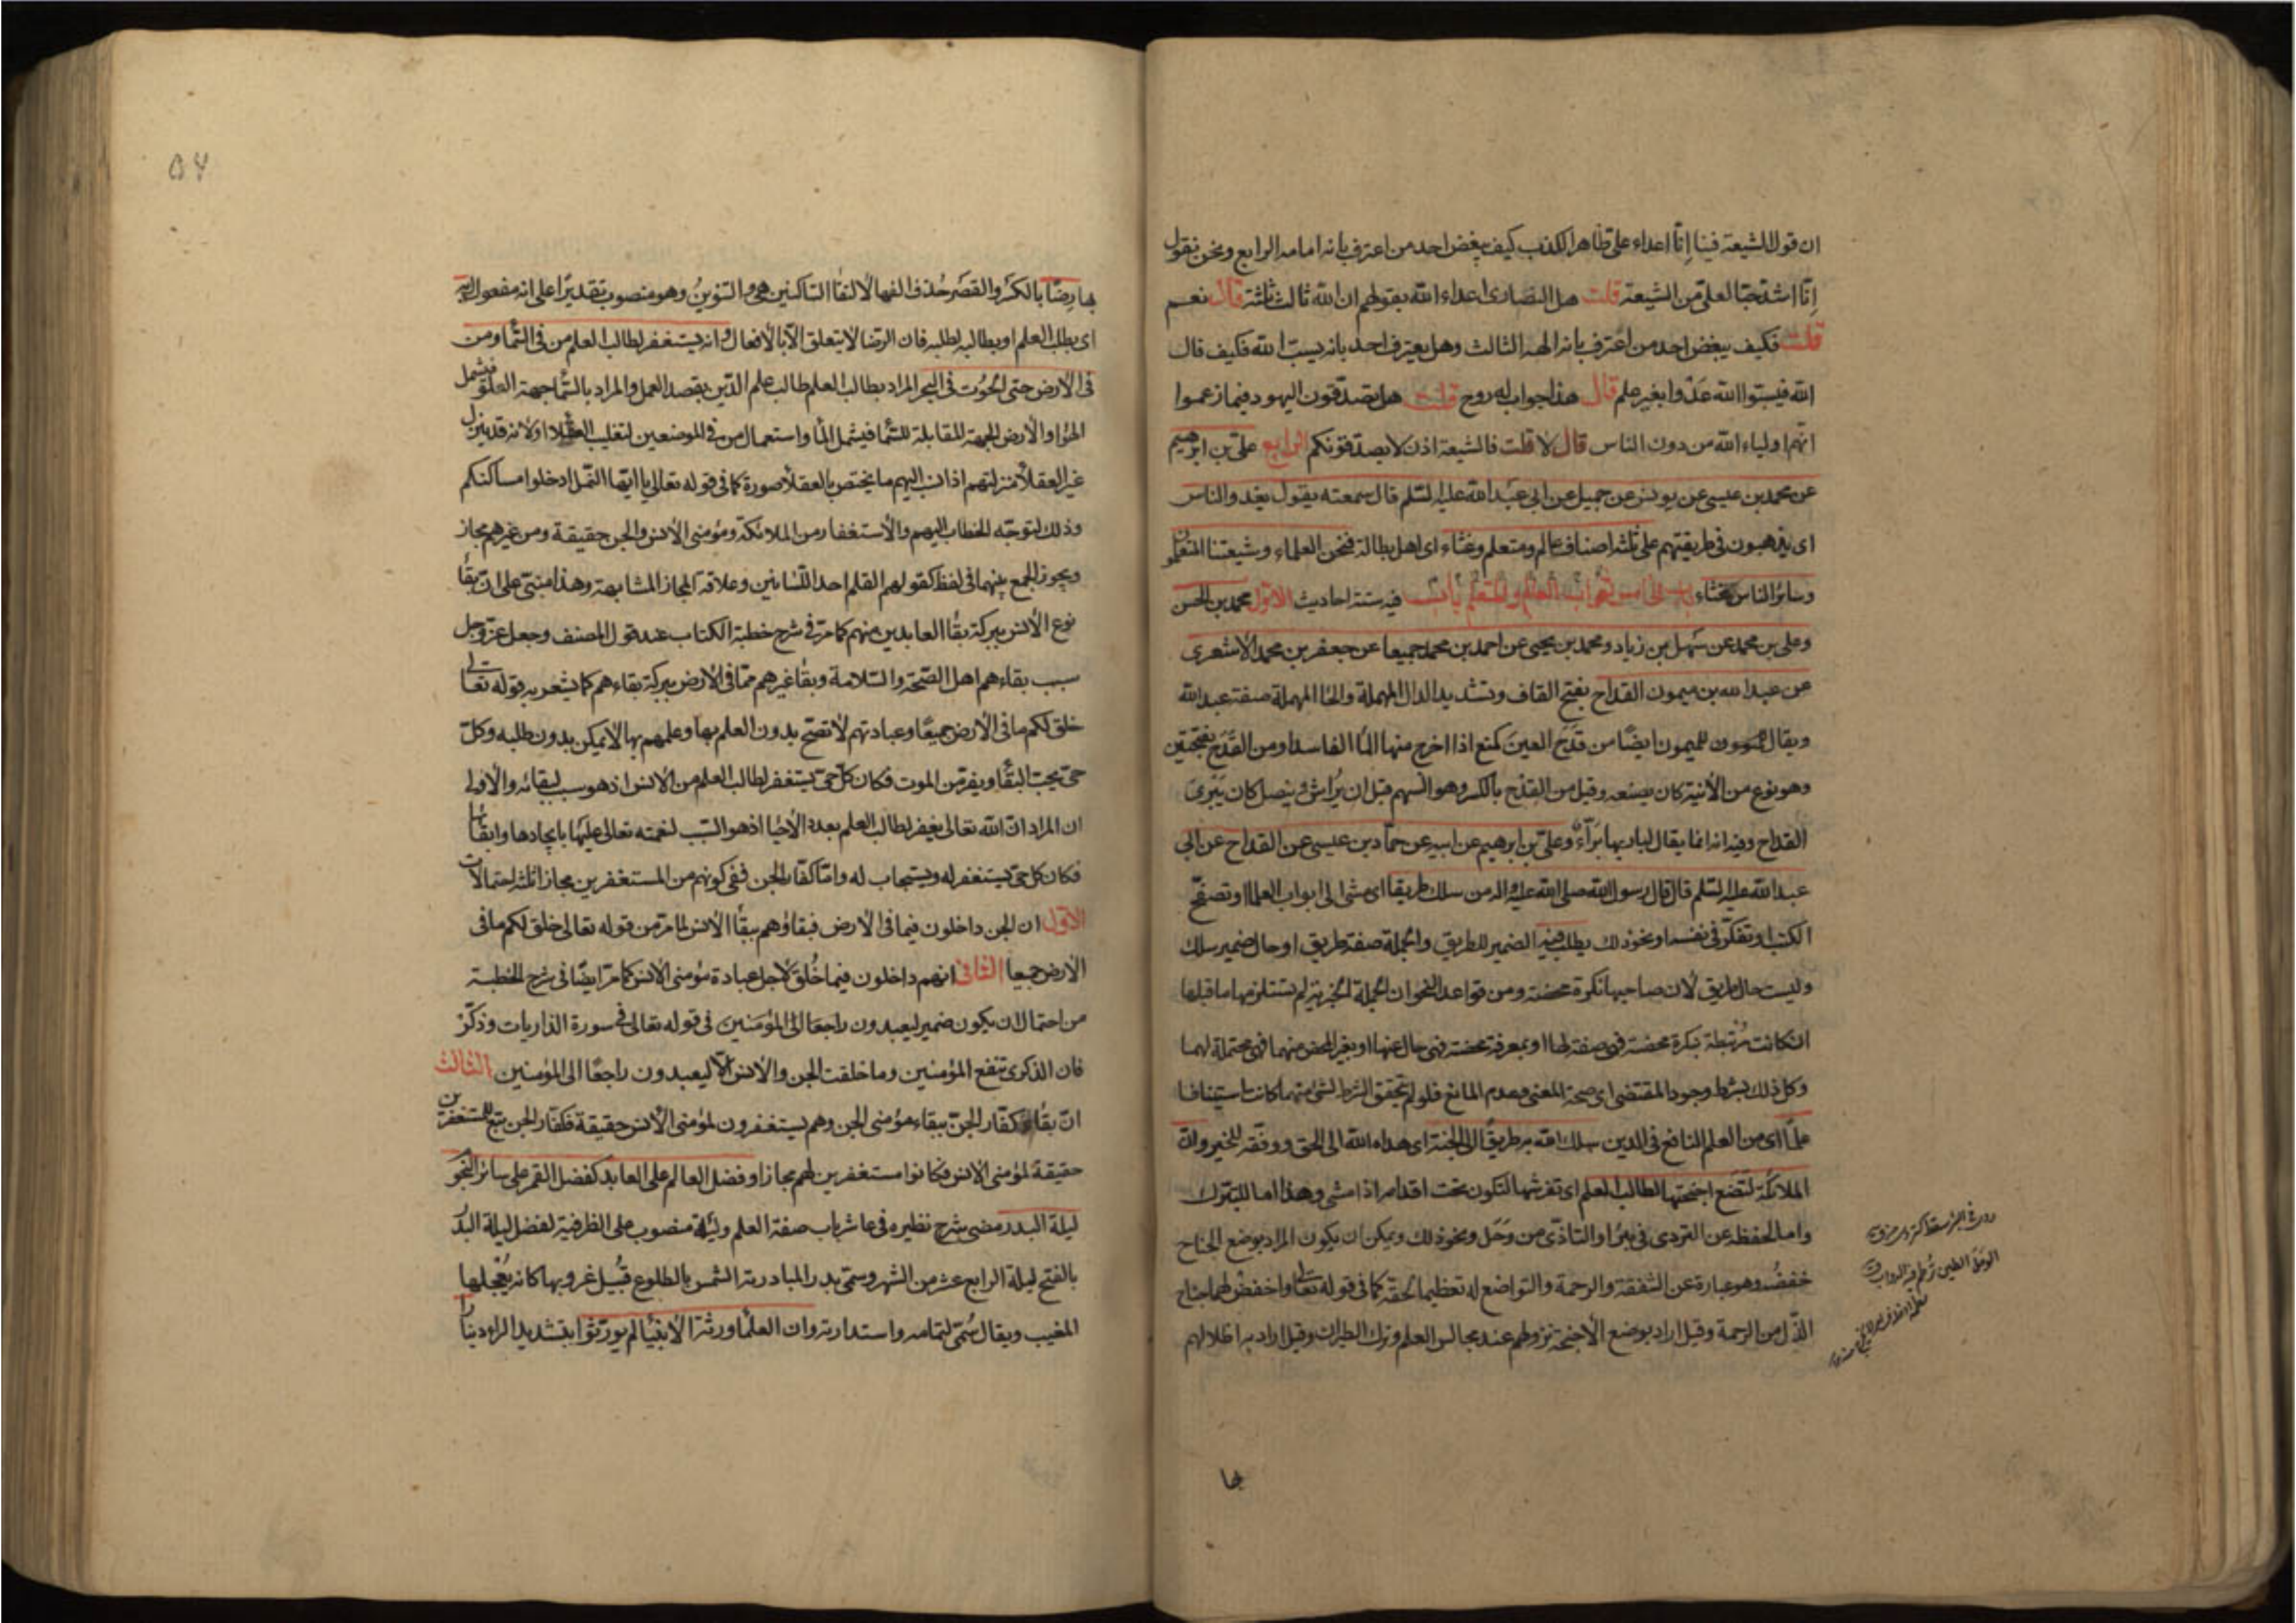 ان قول الشيعة فينا إنّا اعداء علىّ ظاهر الكذب كيف يبغض احد من اعترف بانه امامه الرابع ونحن نقول
إنّا اشدّ حبّا لعلىّ من الشيعة قلت هل النصارى اعداء الله بقولهم ان الله ثالث ثلثة قال نعم
قلت فكيف يبغض احد من اعترف بانه الهه الثالث وهل يعترف احد بانه يسبّ الله فكيف قال
الله فيسبّوا الله عَدْوا بغير علم قال هذا جواب له روح قلت هل تصدّقون اليهود فيما زعموا
انّهم اولياء الله من دون الناس قال لا قلت فالشيعة اذن لا يصدّقونكم الرابع علىّ بن ابرهيم
عن محمد بن عيسى عن يونس عن جميل عن ابى عبد الله عليه السّلم قال سمعته يقول يغدو الناس
اى يذهبون فى طريقتهم على ثلثة اصناف عالم ومتعلم وغثاء اى اهل بطالة فنحن العلماء وشيعتنا المتعلمون
وسائر الناس غثاء باب ثواب العالم والمتعلم فيه ستة احاديث الاوّل محمد بن الحسن
وعلى بن محمد عن سهل بن زياد ومحمد بن يحيى عن احمد بن محمد جميعا عن جعفر بن محمد الاشعرى
عن عبد الله بن ميمون القداح بفتح القاف وتشديد الدال المهملة والحا المهملة صفة عبد الله
ويقال لميمون ايضًا من قدَحَ العينَ كمنع اذا اخرج منها المأ الفاسد او من القَدَح بفتحتين
وهو نوع من الآنية كان يصنعه وقيل من القِدْح بالكسر وهو السهم قبل ان يُراش وينصل كان يَبْرِى
القداح وفيه انه انما يقال لباريها بَرّاءٌ وعلىّ بن ابرهيم عن ابيه عن حمّاد بن عيسى عن القداح عن ابى
عبد الله عليه السّلم قال قال رسول الله صلى الله عليه واله من سلك طريقا اى مشى الى ابواب العلما او تصفّح
الكتب او تفكّر فى نفسه او نحو ذلك يطلب فيه الضمير للطريق والجملة صفة طريق او حال ضمير سلك
وليست حال طريق لان صاحبها نكرة محضة ومن قواعد النحو ان الجملة الخبرية لم يستلزمها ما قبلها
ان كانت مرتبطة بنكرة محضة فهى صفة لها او بمعرفة محضة فهى حال عنها او بغير المحض منهما فهى محتملة لهما
وكل ذلك بشرط وجود المقتضى اى صحة المعنى وعدم المانع فلو لم يتحقق الشرط لشئ منهما كانت استينافا
علمًا اى من العلم النافع فى الدين سلك الله به طريقًا الى الجنة اى هداه الله الى الحق ووفّقه للخير وانّ
الملائكة لتضع اجنحتها لطالب العلم اى تفرشها لتكون تحت اقدامه اذا مشى وهذا اما للتبرّك
واما لحفظه عن التردى فى بئر او التاذّى من وَحَل ونحو ذلك ويمكن ان يكون المراد بوضع الجناح
خفضُه وهو عبارة عن الشفقة والرحمة والتواضع له تعظيما لحقه كما فى قوله تعالى واخفض لهما جناح
الذّل من الرحمة وقيل اراد بوضع الاجنحة نزولهم عند مجالس العلم وترك الطيران وقيل اراد به اظلالهم
بها
بها رِضًا بالكسر والقصر حُذف الفها لالتقأ الساكنين هى والتنوينُ وهو منصوب تقديرًا على انه مفعول له به
اى بطلب العلم او بطالبه لطلبه فان الرّضا لا يتعلق الّا بالافعال وانه يستغفر لطالب العلم من فى السّمأ ومن
فى الارض حتى الحُوت فى البحر المراد بطالب العلم طالب علم الدّين بقصد العمل والمراد بالسّمأ جهة العلوّ فيشمل
الهوأ والارض الجهة المقابلة للسّمأ فيشمل المأ واستعمال من فى الموضعين لتغليب العقلا او لانه قد ينزل
غير العقلأ منزلتهم اذا نسب اليهم ما يختص بالعقلأ صورة كما فى قوله تعالى يا ايّها النّمل ادخلوا مساكنكم
وذلك لتوجّه الخطاب اليهم والاستغفار من الملائكة ومؤمنى الانس والجن حقيقة ومن غيرهم مجاز
ويجوز الجمع بينهما فى لفظ كقولهم القلم احد اللّسانين وعلاقة المجاز المشابهة وهذا مبنىّ على ان بقأ
نوع الانس ببركة بقأ العابدين منهم كما مرّ فى شرح خطبة الكتاب عند قول المصنف وجعل عزّ وجل
سبب بقاءهم اهل الصّحة والسّلامة وبقأ غيرهم ممّا فى الارض ببركة بقاءهم كما يشعر به قوله تعالى
خلق لكم ما فى الارض جميعًا وعبادتهم لا تصحّ بدون العلم بها وعلمهم بها لا يمكن بدون طلبه وكلّ
حىّ يحبّ البقأ ويفرّ من الموت فكان كلّ حىّ يستغفر لطالب العلم من الانس اذ هو سبب لبقائه والاولى
ان المراد انّ الله تعالى يغفر لطالب العلم بعدد الاحيا اذ هو السّبب لنعمته تعالى عليها بايجادها وابقائها
فكان كل حىّ يستغفر له ويستجاب له وامّا كفّار الجن ففى كونهم من المستغفرين مجازا ثلثة احتمالات
الاوّل ان الجن داخلون فيما فى الارض فبقاؤهم ببقأ الانس لما مرّ من قوله تعالى خلق لكم ما فى
الارض جميعا الثانى انهم داخلون فيما خُلِقَ لاجل عبادة مؤمنى الانس كما مرّ ايضًا فى شرح الخطبة
من احتمال ان يكون ضمير ليعبدون راجعا الى المؤمنين فى قوله تعالى فى سورة الذاريات وذكّر
فان الذكرى تنفع المؤمنين وما خلقت الجن والانس الّا ليعبدون راجعًا الى المؤمنين الثالث
انّ بقأ كفّار الجنّ ببقاء مؤمنى الجن وهم يستغفرون لمؤمنى الانس حقيقة فكفّار الجن تبع للمستغفرين
حقيقة لمؤمنى الانس فكانوا مستغفرين لهم مجازا وفضل العالم على العابد كفضل القمر على سائر النجو
ليلة البدر مضى شرح نظيره فى عاشر باب صفة العلم وليلة منصوب على الظرفية لفضل ليلة البدر
بالفتح ليلة الرابع عشر من الشهر وسمّى بدرا لمبادرته الشمس بالطلوع قُبيل غروبها كانه يُعْجِلها
المغيب ويقال سُمّى لتمامه واستدارته وان العلمأ ورثة الانبيأ لم يورّثوا بتشديد الراء دينارا